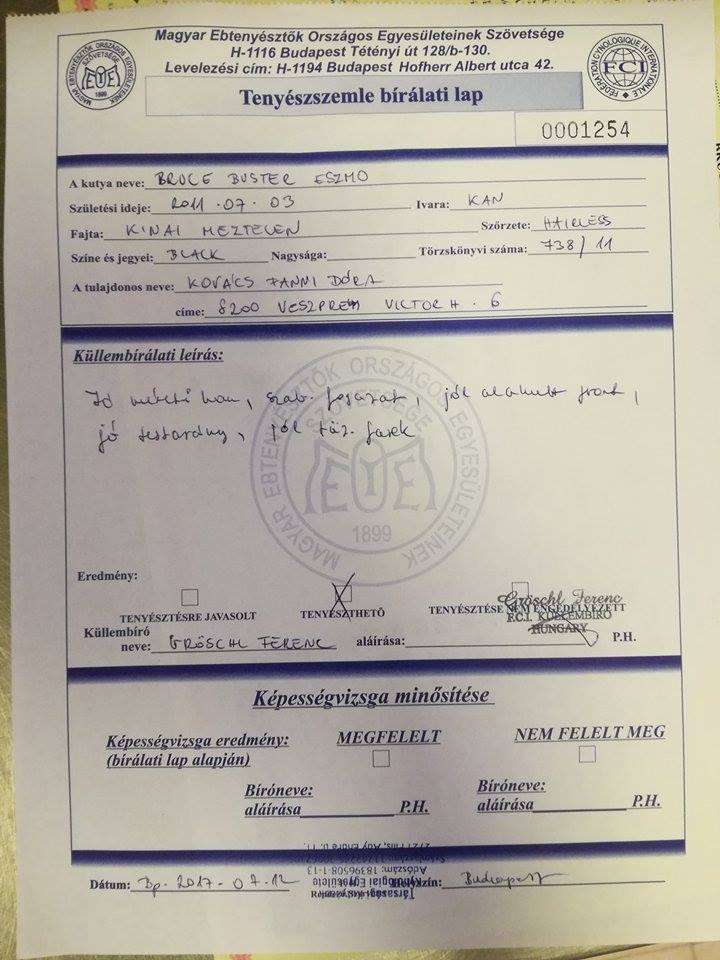 Magyar Ebtenyésztők Országos Egyesületeinek Szövetsége
H-1116 Budapest Tétényi út 128/b-130.
Levelezési cím: H-1194 Budapest Hofherr Albert utca 42.
MAGYAR EBTENYÉSZTŐK ORSZÁGOS EGYESÜLETEINEK SZÖVETSÉGE
MEOE
1899
FEDERATION CYNOLOGIQUE INTERNATIONALE
FCI
Tenyészszemle bírálati lap
0001254
A kutya neve: BRUCE BUSTER ESZMO
Születési ideje: 2011.07.03 Ivara: KAN
Fajta: KINAI MEZTELEN Szőrzete: HAIRLESS
Színe és jegyei: BLACK Nagysága: Törzskönyvi száma: 738/11
A tulajdonos neve: KOVÁCS FANNI DÓRA
címe: 8200 VESZPRÉM VICTOR H. 6
Küllembírálati leírás:
Jó méretű kan, szab. fogazat, jól alakult front,
jó testarány, jól tűz. farok
MAGYAR EBTENYÉSZTŐK ORSZÁGOS EGYESÜLETEINEK
SZÖVETSÉGE
1899
Eredmény:
TENYÉSZTÉSRE JAVASOLT TENYÉSZTHETŐ TENYÉSZTÉSE NEM ENGEDÉLYEZETT
Gröschl Ferenc
F.C.I. KÜLLEMBÍRÓ
HUNGARY
Küllembíró
neve: GRÖSCHL FERENC aláírása: P.H.
Képességvizsga minősítése
Képességvizsga eredmény: MEGFELELT NEM FELELT MEG
(bírálati lap alapján)
Bíróneve: Bíróneve:
aláírása P.H. aláírása P.H.
Adószám: 18396508-1-13
Dátum: Bp. 2017.07.12 Helyszín: Budapest